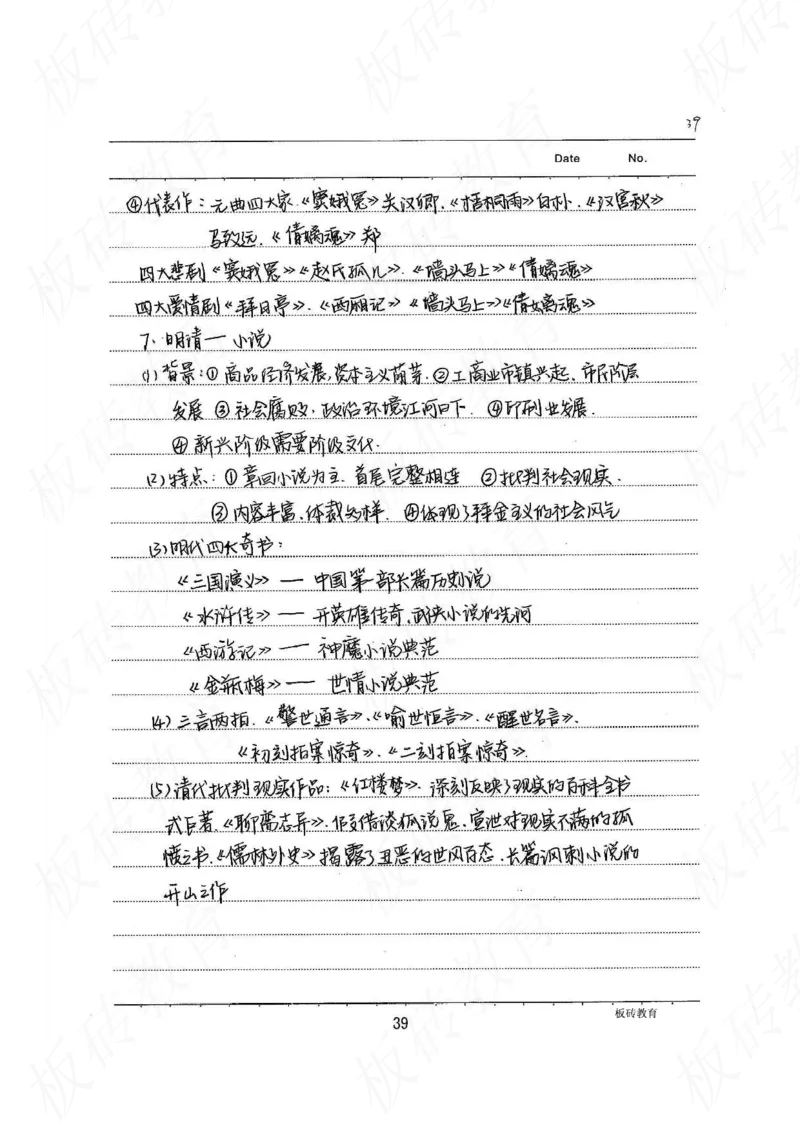 39
Date No.
④代表作：元曲四大家.《窦娥冤》关汉卿.《梧桐雨》白朴.《汉宫秋》
马致远.《倩女离魂》郑
四大悲剧《窦娥冤》《赵氏孤儿》.《墙头马上》《倩女离魂》
四大爱情剧《拜月亭》.《西厢记》《墙头马上》《倩女离魂》
7、明清—小说
(1)背景：①商品经济发展,资本主义萌芽.②工商业市镇兴起、市民阶层
发展 ③社会腐败.政治环境江河日下. ④印刷业发展.
④新兴阶级需要阶级文化.
(2)特点：①章回小说为主.首尾完整相连 ②批判社会现实.
③内容丰富.体裁多样. ④体现了拜金主义的社会风气
(3)明代四大奇书：
《三国演义》— 中国第一部长篇历史小说
《水浒传》— 开英雄传奇.武侠小说的先河
《西游记》— 神魔小说典范
《金瓶梅》— 世情小说典范
(4)三言两拍.《警世通言》.《喻世恒言》.《醒世名言》.
《初刻拍案惊奇》.《二刻拍案惊奇》.
(5)清代批判现实作品：《红楼梦》.深刻反映了现实的百科全书
式巨著.《聊斋志异》.作者借谈狐说鬼.宣泄对现实不满的孤
愤之书.《儒林外史》揭露了丑恶的世风百态.长篇讽刺小说的
开山之作
39
板砖教育